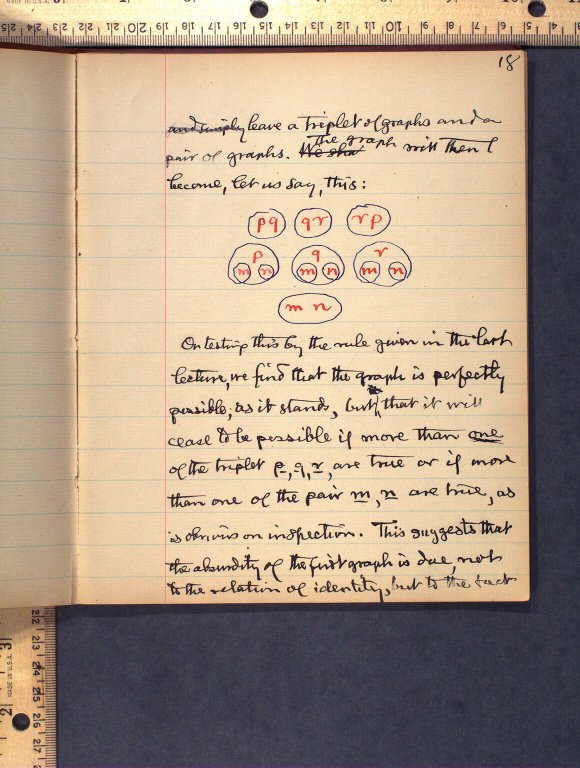 18
and simply leave a triplet of graphs and a
pair of graphs. We sha the graph will then
become, let us say, this:
pq qr rp
p q r
m n m n m n
m n
On testing this by the rule given in the last
lecture, we find that the graph is perfectly
possible, as it stands, but that it will
cease to be possible if more than one
of the triplet p, q, r, are true or if more
than one of the pair m, n are true, as
is obvious on inspection. This suggests that
the absurdity of the first graph is due, not
to the relation of identity, but to the fact
MADE IN U.S.A.